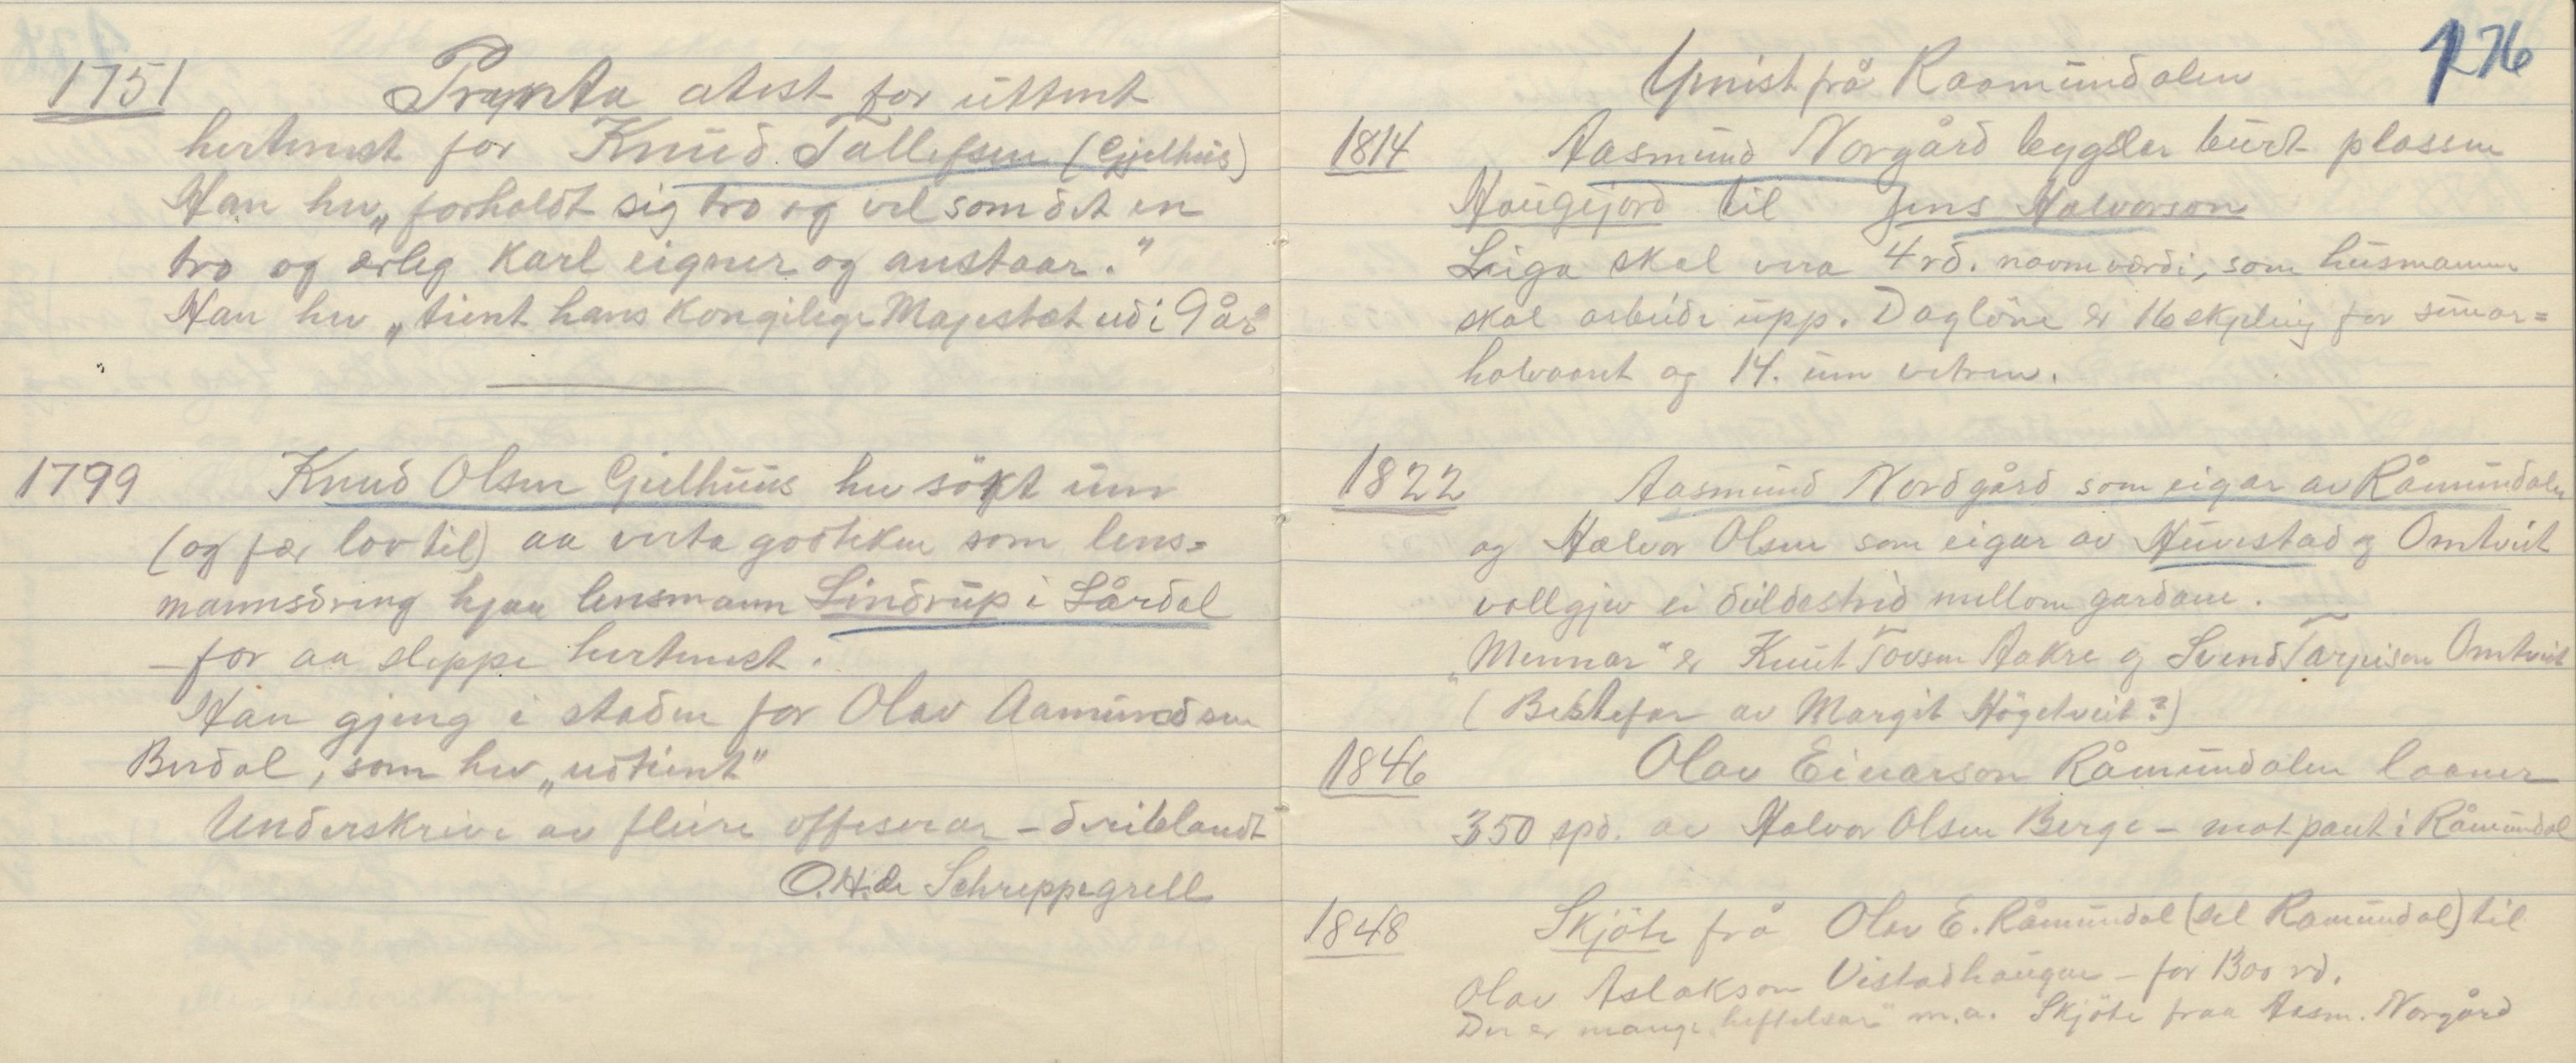 1751 Prenta atest for uttent
hertenest for Knud Tallefsen (Gjelhus)
Han hev „forholdt sig tro og vel som det en
tro og ærleg Karl eigner og anstaar."
Han hev „tient hans Kongelige Majestæt udi 9 år"
1799 Knud Olsen Gjelhuus hev søkt um
(og fær lov til) aa verta godteken som lens=
mannsdreng hjaa lensmann Lindrup i Lårdal
– for aa sleppe hertenest.
Han gjeng i staden for Olav Aamundsen
Berdal, som hev „udtient"
Underskrive av fleire offeserar – deriblandt
O.H. de Schreppegrell
176
Ymist frå Raamundalen
1814 Aasmund Norgård bygsler burt plassen
Haugejord til Jens Halvorson
Leiga skal vera 4 rd. navneverdi, som husmannen
skal arbeide upp. Dagløne er 16 skjeling for sumar=
halvaaret og 14. um vetren.
1822 Aasmund Nordgård som eigar av Råmundalen
og Halvor Olsen som eigar av Huvestad og Omtveit
vollgjev ei deildestrid mellom gardane.
„Mennar" er Knut Tovsen Aakre og Svend Tarjeisen Omtveit
(Bestefar av Margit Högetveit?)
1846 Olav Einarson Råmundalen laaner
350 spd. av Halvor Olsen Berge – mot pant i Råmundal
1848 Skjöte frå Olav E. Råmundal (del Ramundal) til
Olav Aslakson Vistadhaugen – for 1300 rd.
Der er mange „heftelsar" m.a. Skjöte fraa Aasm. Norgård